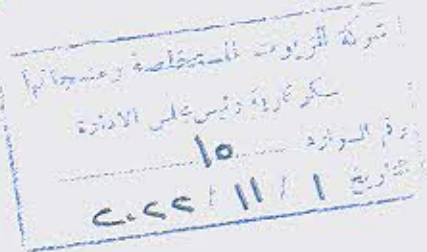 شركة الزيوت المستخلصة ومنتجاتها
سكرتارية رئيس مجلس الادارة
رقم الوارد ١٥
تاريخ ١ / ١١ / ٢٠٢٢